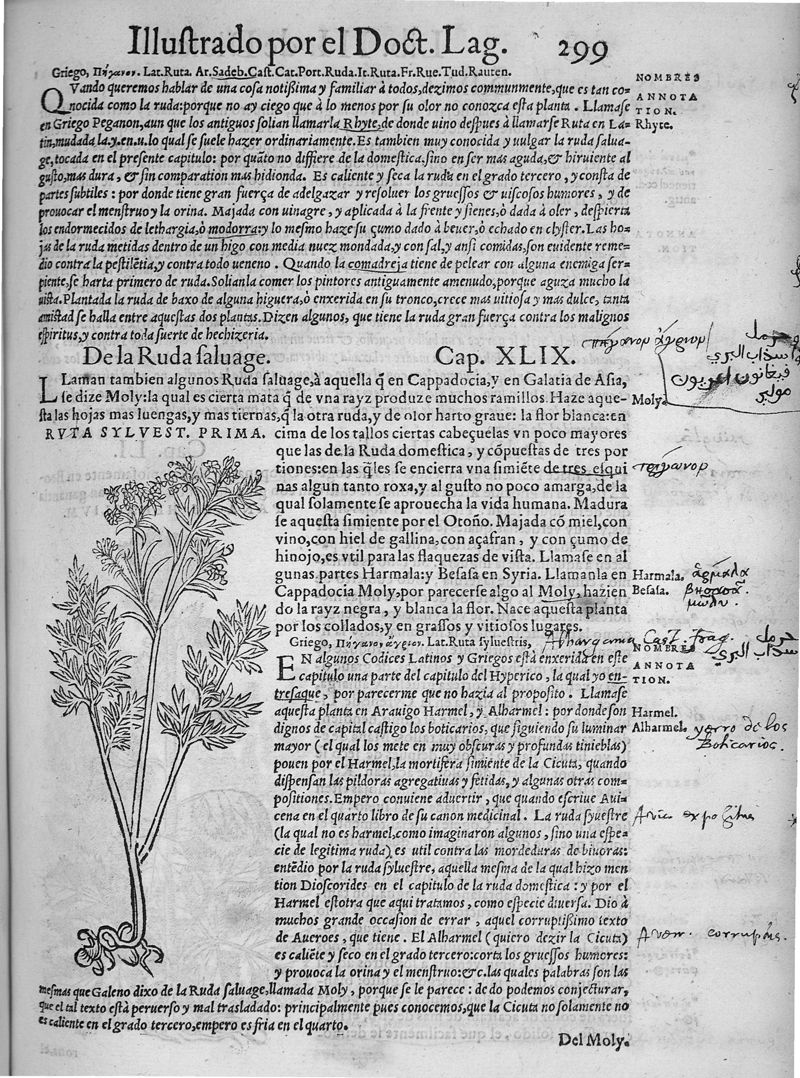 Illustrado por el Doct. Lag. 299
Griego, Πήγανον. Lat. Ruta. Ar. Sadeb. Cast. Cat. Port. Ruda. It. Ruta. Fr. Rue. Tud. Rauten.
NOMBRES
QVando queremos hablar de una cosa notißima y familiar à todos, dezimos communmente, que es tan co-
nocida como la ruda: porque no ay ciego que à lo menos por su olor no conozca esta planta. Llamase
en Griego Peganon, aun que los antiguos solian llamarla Rhyte, de donde uino despues à llamarse Ruta en La-
tin, mudada la .y. en .u. lo qual se suele hazer ordinariamente. Es tambien muy conocida y uulgar la ruda salua-
ge, tocada en el presente capitulo: por quãto no differe de la domestica, sino en ser mas aguda, & hiruiente al
gusto, mas dura, & sin comparation mas hidionda. Es caliente y seca la ruda en el grado tercero, y consta de
partes subtiles: por donde tiene gran fuerça de adelgazar y resoluer los gruessos & uiscosos humores, y de
prouocar el menstruo y la orina. Majada con uinagre, y aplicada à la frente y sienes, ò dada à oler, despierta
los endormecidos de lethargia, ò modorra: y lo mesmo haze su çumo dado à beuer, ò echado en clyster. Las ho-
jas de la ruda metidas dentro de un higo con media nuez mondada, y con sal, y ansi comidas, son euidente reme-
dio contra la pestilẽtia, y contra todo ueneno. Quando la comadreja tiene de pelear con alguna enemiga ser-
piente, se harta primero de ruda. Solianla comer los pintores antiguamente amenudo, porque aguza mucho la
uista. Plantada la ruda de baxo de alguna higuera, ò enxerida en su tronco, crece mas uitiosa y mas dulce, tanta
amistad se halla entre aquestas dos plantas. Dizen algunos, que tiene la ruda gran fuerça contra los malignos
espiritus, y contra toda suerte de hechizeria.
ANNOTA
TION.
Rhyte.
De la Ruda saluage. Cap. XLIX.
LLaman tambien algunos Ruda saluage, à aquella q̃ en Cappadocia, y en Galatia de Asia,
se dize Moly: la qual es cierta mata q̃ de vna rayz produze muchos ramillos. Haze aque-
sta las hojas mas luengas, y mas tiernas, q̃ la otra ruda, y de olor harto graue: la flor blanca: en
Moly.
RVTA SYLVEST. PRIMA.
cima de los tallos ciertas cabeçuelas vn poco mayores
que las de la Ruda domestica, y cõpuestas de tres por
tiones: en las q̃les se encierra vna simiẽte de tres esqui
nas algun tanto roxa, y al gusto no poco amarga, de la
qual solamente se aprouecha la vida humana. Madura
se aquesta simiente por el Otoño. Majada cõ miel, con
vino, con hiel de gallina, con açafran, y con çumo de
hinojo, es vtil para las flaquezas de vista. Llamase en al
gunas partes Harmala: y Besasa en Syria. Llamanla en
Cappadocia Moly, por parecerse algo al Moly, hazien
do la rayz negra, y blanca la flor. Nace aquesta planta
por los collados, y en grassos y vitiosos lugares.
πήγανον ἄγριον
حرمل
سذاب البري
مولي
Harmala. ἅρμαλα
Besasa.
μῶλυ.
Griego, Πήγανον ἄγριον. Lat. Ruta syluestris,
NOMBRES
حرمل
سذاب البري
EN algunos Codices Latinos y Griegos está enxerida en este
capitulo una parte del capitulo del Hyperico, la qual yo en-
tresaque, por parecerme que no hazia al proposito. Llamase
aquesta planta en Arauigo Harmel, y Alharmel: por donde son
dignos de capital castigo los boticarios, que siguiendo su luminar
mayor (el qual los mete en muy obscuras y profundas tinieblas)
ponen por el Harmel, la mortifera simiente de la Cicuta, quando
dispensan las pildoras agregatiuas y fetidas, y algunas otras com-
positiones. Empero conuiene aduertir, que quando escriue Aui-
cena en el quarto libro de su canon medicinal. La ruda syuestre
(la qual no es harmel, como imaginaron algunos, sino una espe-
cie de legitima ruda) es util contra las mordeduras de biuoras:
entẽdio por la ruda syluestre, aquella mesma de la qual hizo men
tion Dioscorides en el capitulo de la ruda domestica: y por el
Harmel estotra que aqui tratamos, como especie diuersa. Dio à
muchos grande occasion de errar, aquel corruptißimo texto
de Aueroes, que tiene. El Alharmel (quiero dezir la Cicuta)
es caliẽte y seco en el grado tercero: corta los gruessos humores:
y prouoca la orina y el menstruo: &c. las quales palabras son las
mesmas que Galeno dixo de la Ruda saluage, llamada Moly, porque se le parece: de do podemos conjecturar,
que el tal texto está peruerso y mal trasladado: principalmente pues conocemos, que la Cicuta no solamente no
es caliente en el grado tercero, empero es fria en el quarto.
ANNOTA
TION.
Harmel.
Alharmel. yerro de los
Boticarios.
Del Moly.